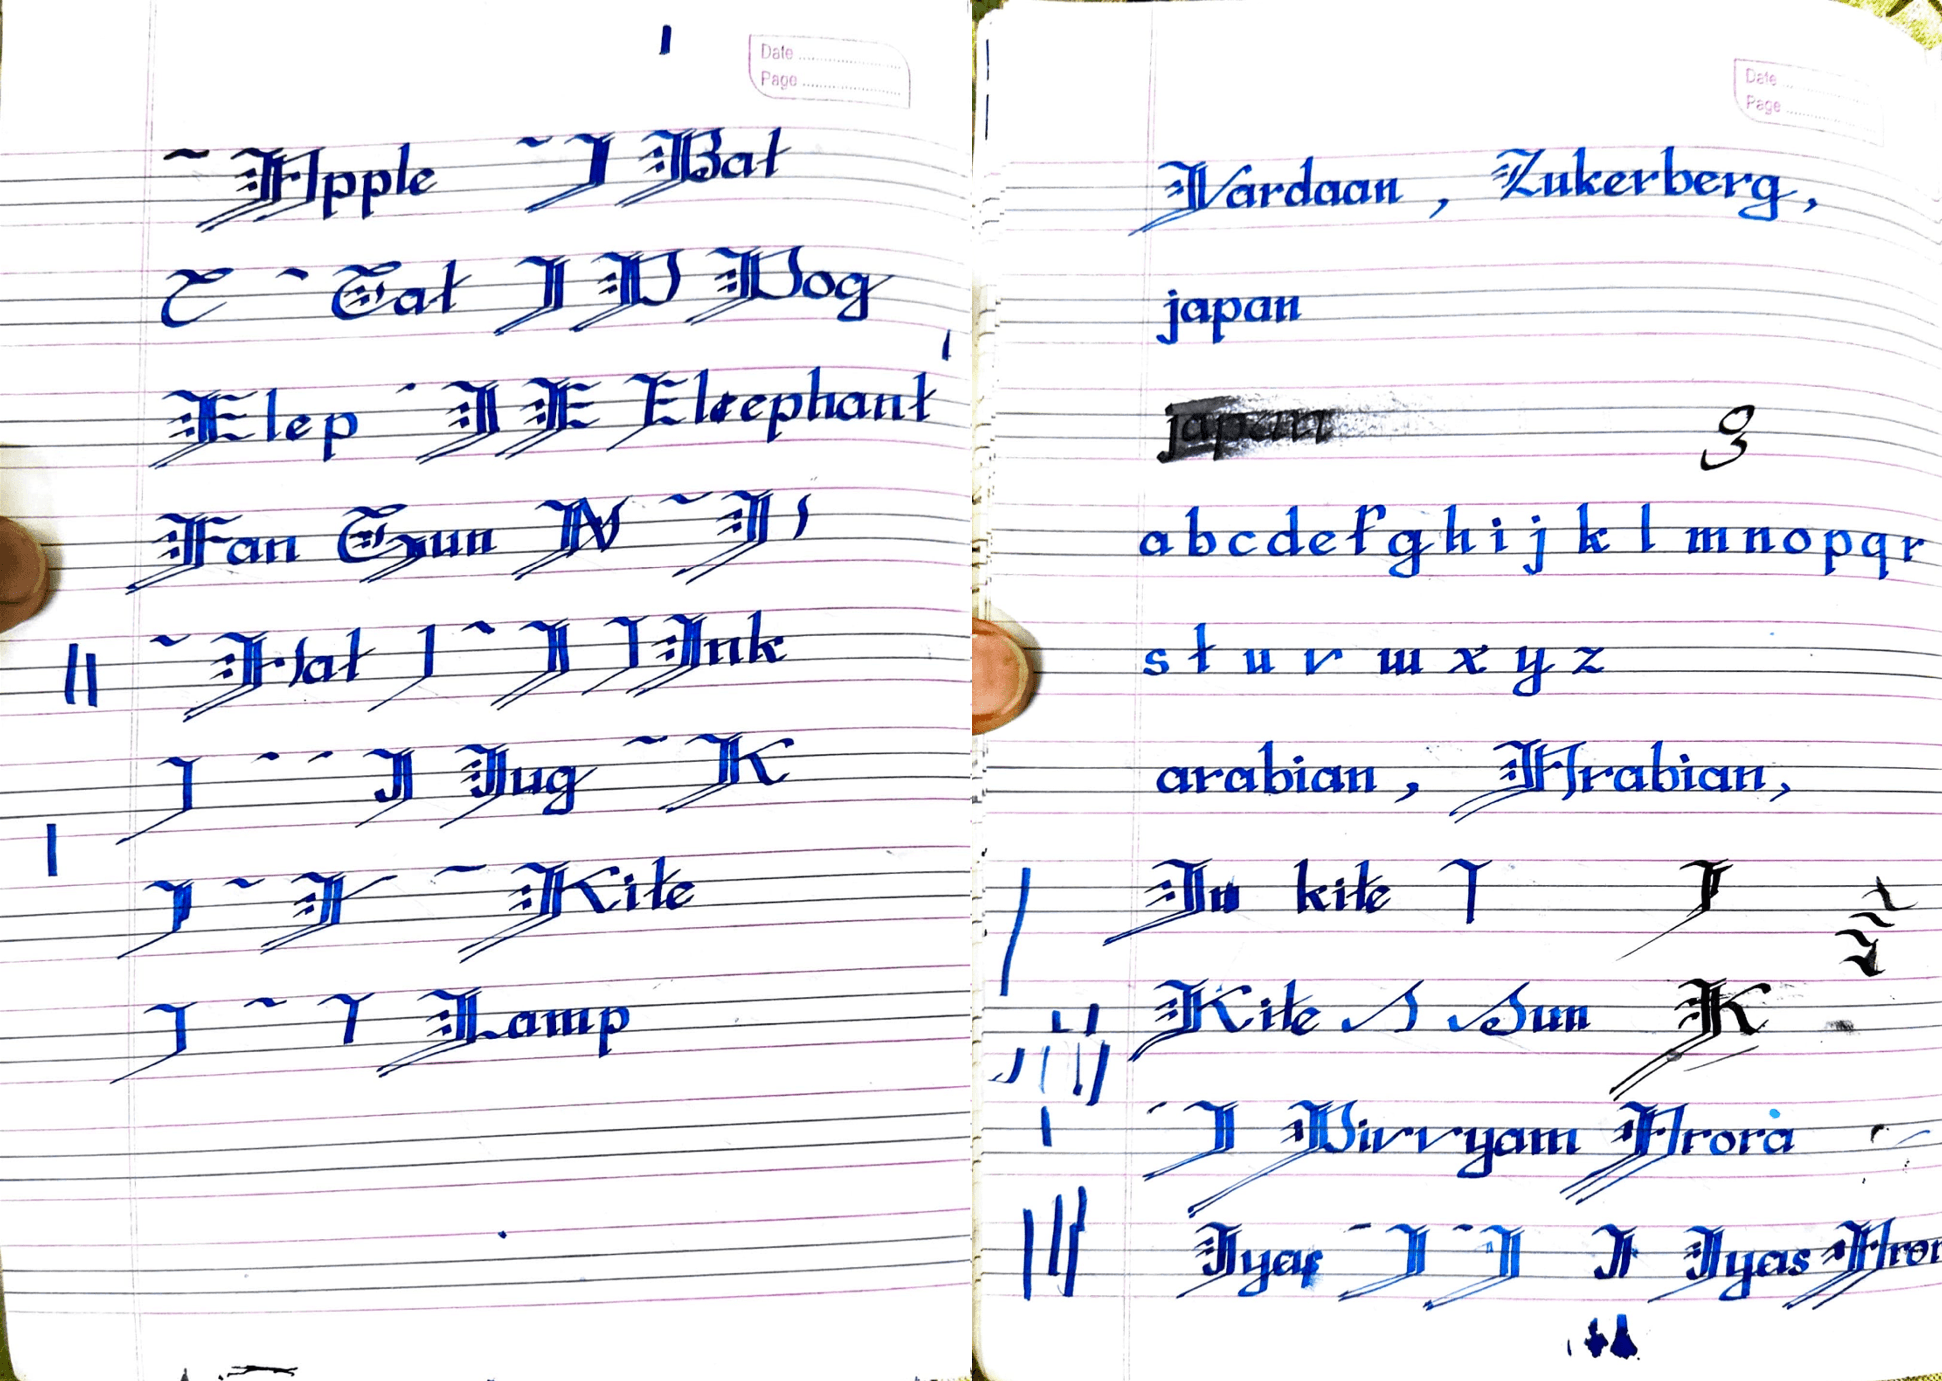 Date
Page
Apple I Bat
C Cat I D Dog
Elep I E Eleephant
Fan Gun N I
Hat I Ink
I Jug K
I K Kite
I Lamp
Date
Page
Vardaan , Zukerberg,
japan
japan
abcdefghijklmnopqr
stuvwxyz
arabian , Arabian,
kite
Kite S Sun K
I Divvyam Arora
Iyas I I Iyas Aror